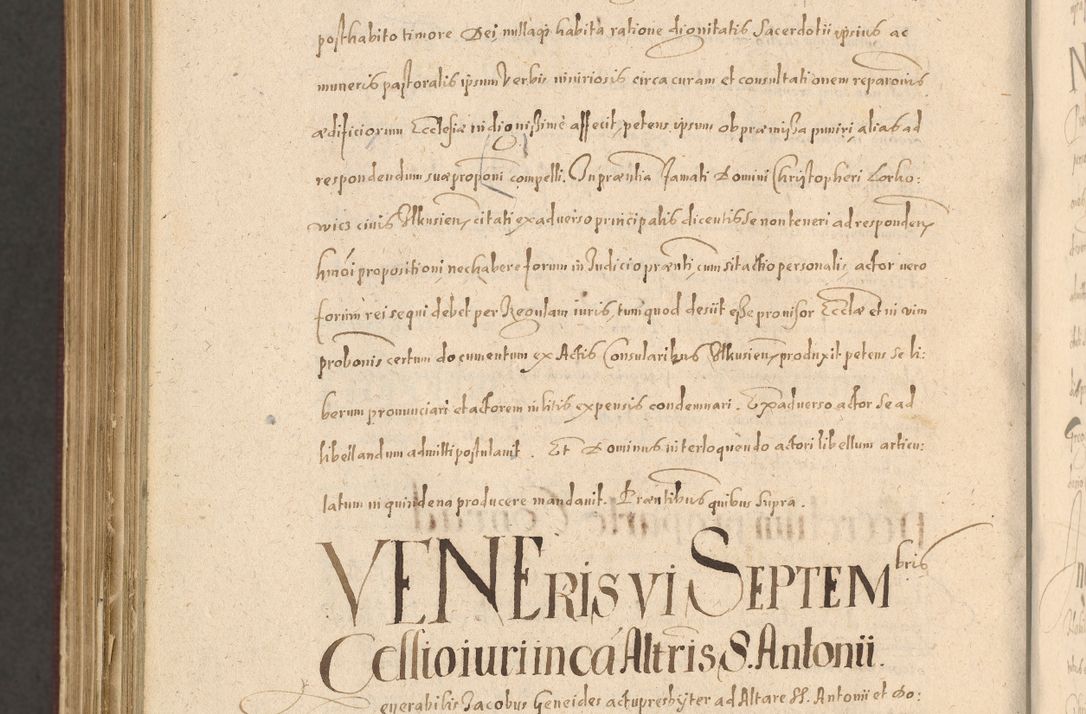 posthabito timore Dei nullaq3 habita ratione dignitatis Sacerdotii ipsius ac
muneris pastoralis ipsum Verbis iniuriosis circa curam et consultationem reparonis
ædificiorum Ecclesiæ indignissime affecit, petens ipsum ob præmissa puniri, alias ad
respondendum suæ proponi compelli. In præntia famati Domini Christopheri Lorko:
wicz civis Ilkusien, citati ex adverso principalis dicentis se non teneri ad responden,
hmoi propositioni nec habere forum in Judicio prænti, cum sit actio personalis, actor vero
forum rei sequi debet per Regulam iuris, tum quod desiit esse provisor Ecclæ et in vim
probonis certum documentum ex Actis Consularibus Ilkusien, produxit petens se li:
berum pronunciari et actorem in litis expensis condemnari. Ex adverso actor se ad
libellandum admitti postulavit. Et Dominus interloquendo actori libellum articu:
latum in quindena producere mandavit. Præntibus quibus supra.
VENERIS VI SEPTEMbris
Cessio iuri in ca Altris S. Antonii.
Venerabilis Jacobus Geneides actu presbyter ad Altare SS. Antonii et Do: